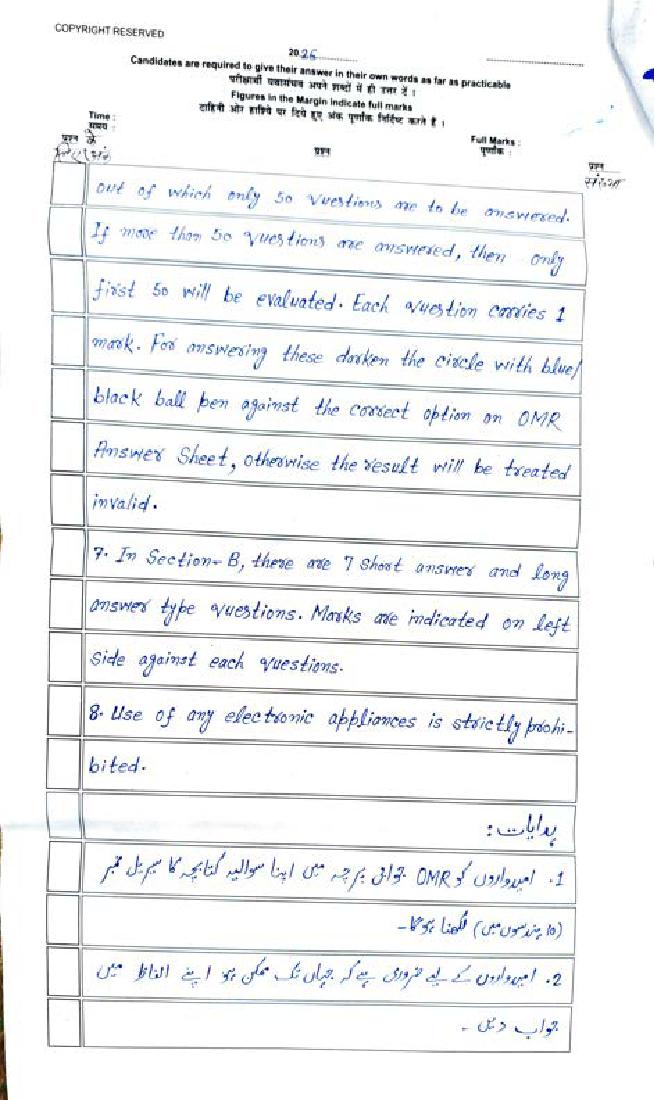 COPYRIGHT RESERVED
2026
Candidates are required to give their answer in their own words as far as practicable
परीक्षार्थी यथासंभव अपने शब्दों में ही उत्तर दें।
Figures in the Margin indicate full marks
दाहिनी ओर हाशिये पर दिये हुए अंक पूर्णांक निर्दिष्ट करते हैं।
Time :
समय :
Full Marks :
पूर्णांक :
प्रश्न के
प्रश्न
प्रश्न
संख्या
out of which only 50 questions are to be answered.
If more than 50 questions are answered, then only
first 50 will be evaluated. Each question carries 1
mark. For answering these darken the circle with blue/
black ball pen against the correct option on OMR
Answer Sheet, otherwise the result will be treated
invalid.
7. In Section-B, there are 7 short answer and long
answer type questions. Marks are indicated on left
side against each questions.
8. Use of any electronic appliances is strictly prohi-
bited.
ہدایات:
1. امیدواروں کو OMR جوابی پرچہ میں اپنا سوالیہ کتابچہ کا سیریل نمبر
(10 ہندسوں میں) لکھنا ہوگا۔
2. امیدواروں کے لیے ضروری ہے کہ جہاں تک ممکن ہو اپنے الفاظ میں
جواب دیں۔